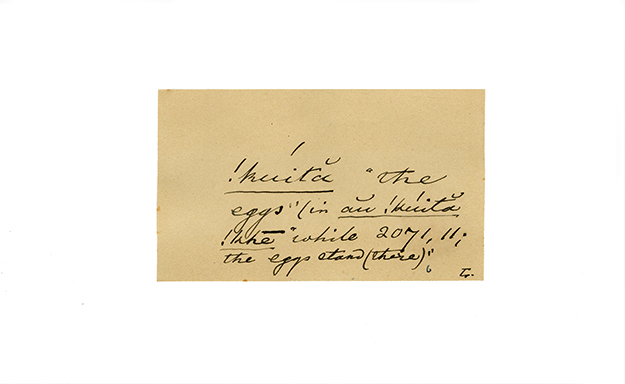 !kuítă "the
eggs" (in ău !kúită
!hhē "while 2071, 11;
the eggs stand (there)";